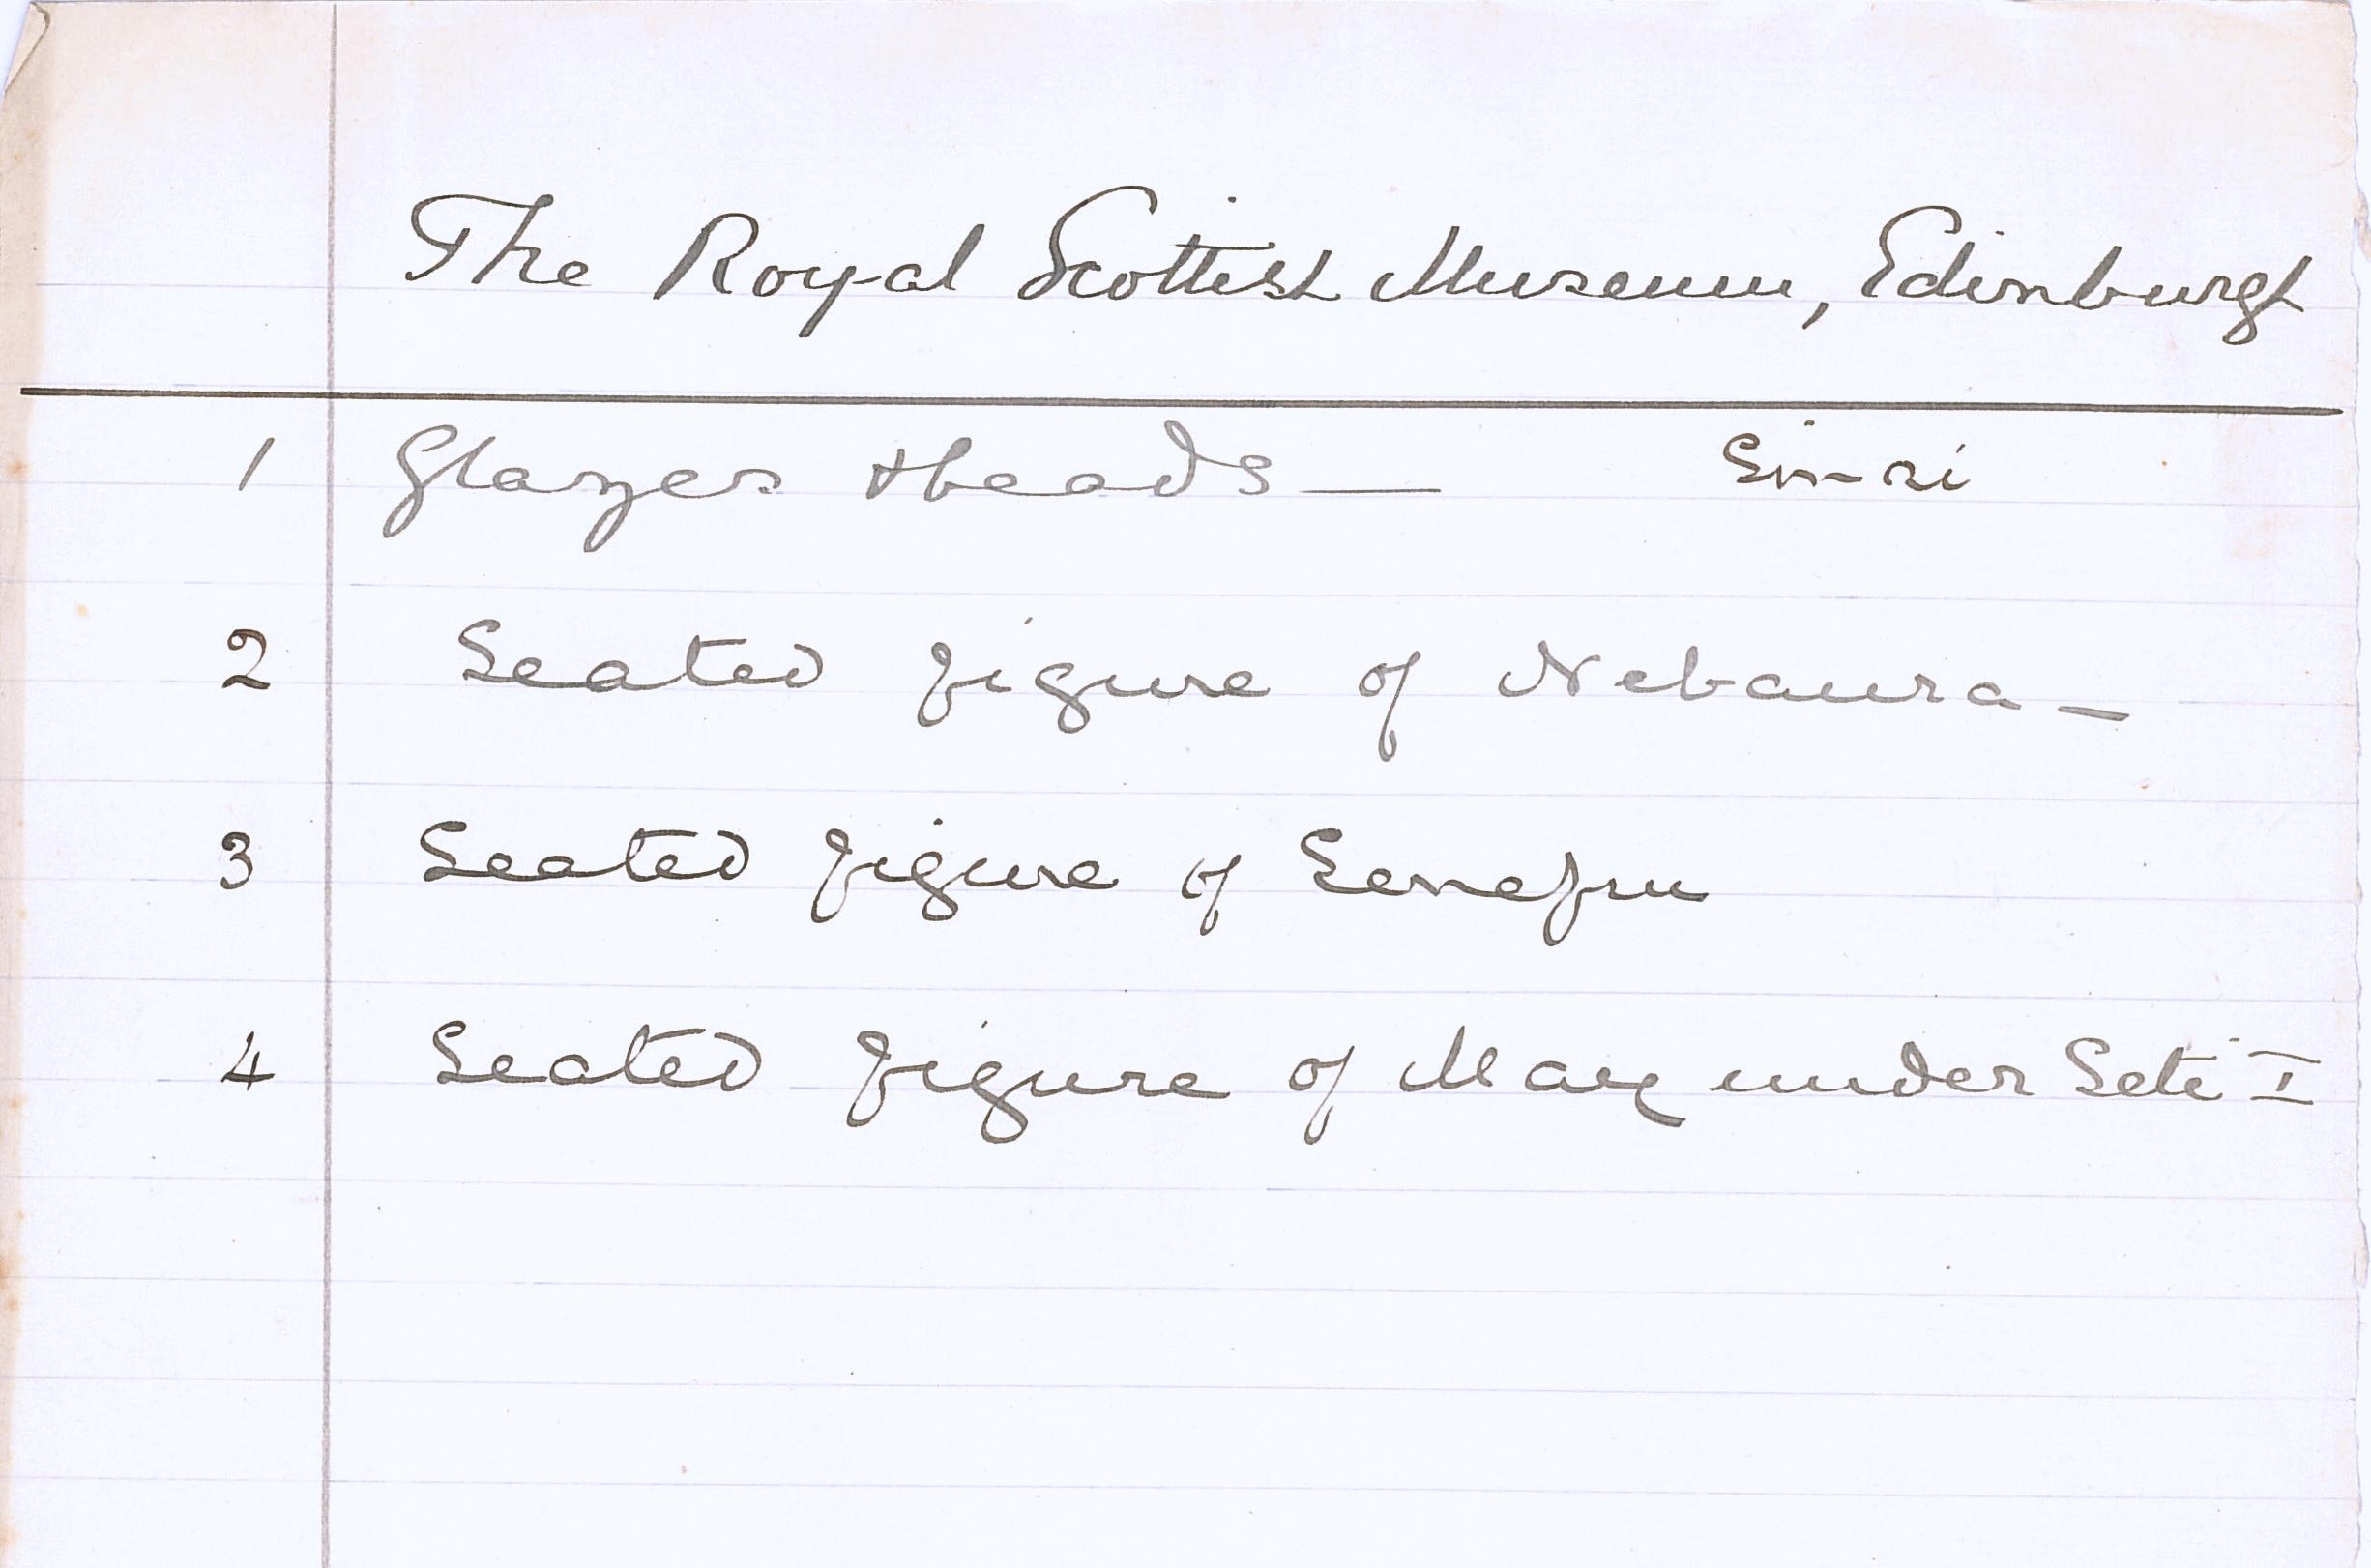 The Royal Scottish Museum, Edinburgh
1 Glazes + beads — Sinai
2 Seated figure of Nebaura —
3 Seated figure of Senefru
4 Seated figure of May under Seti I